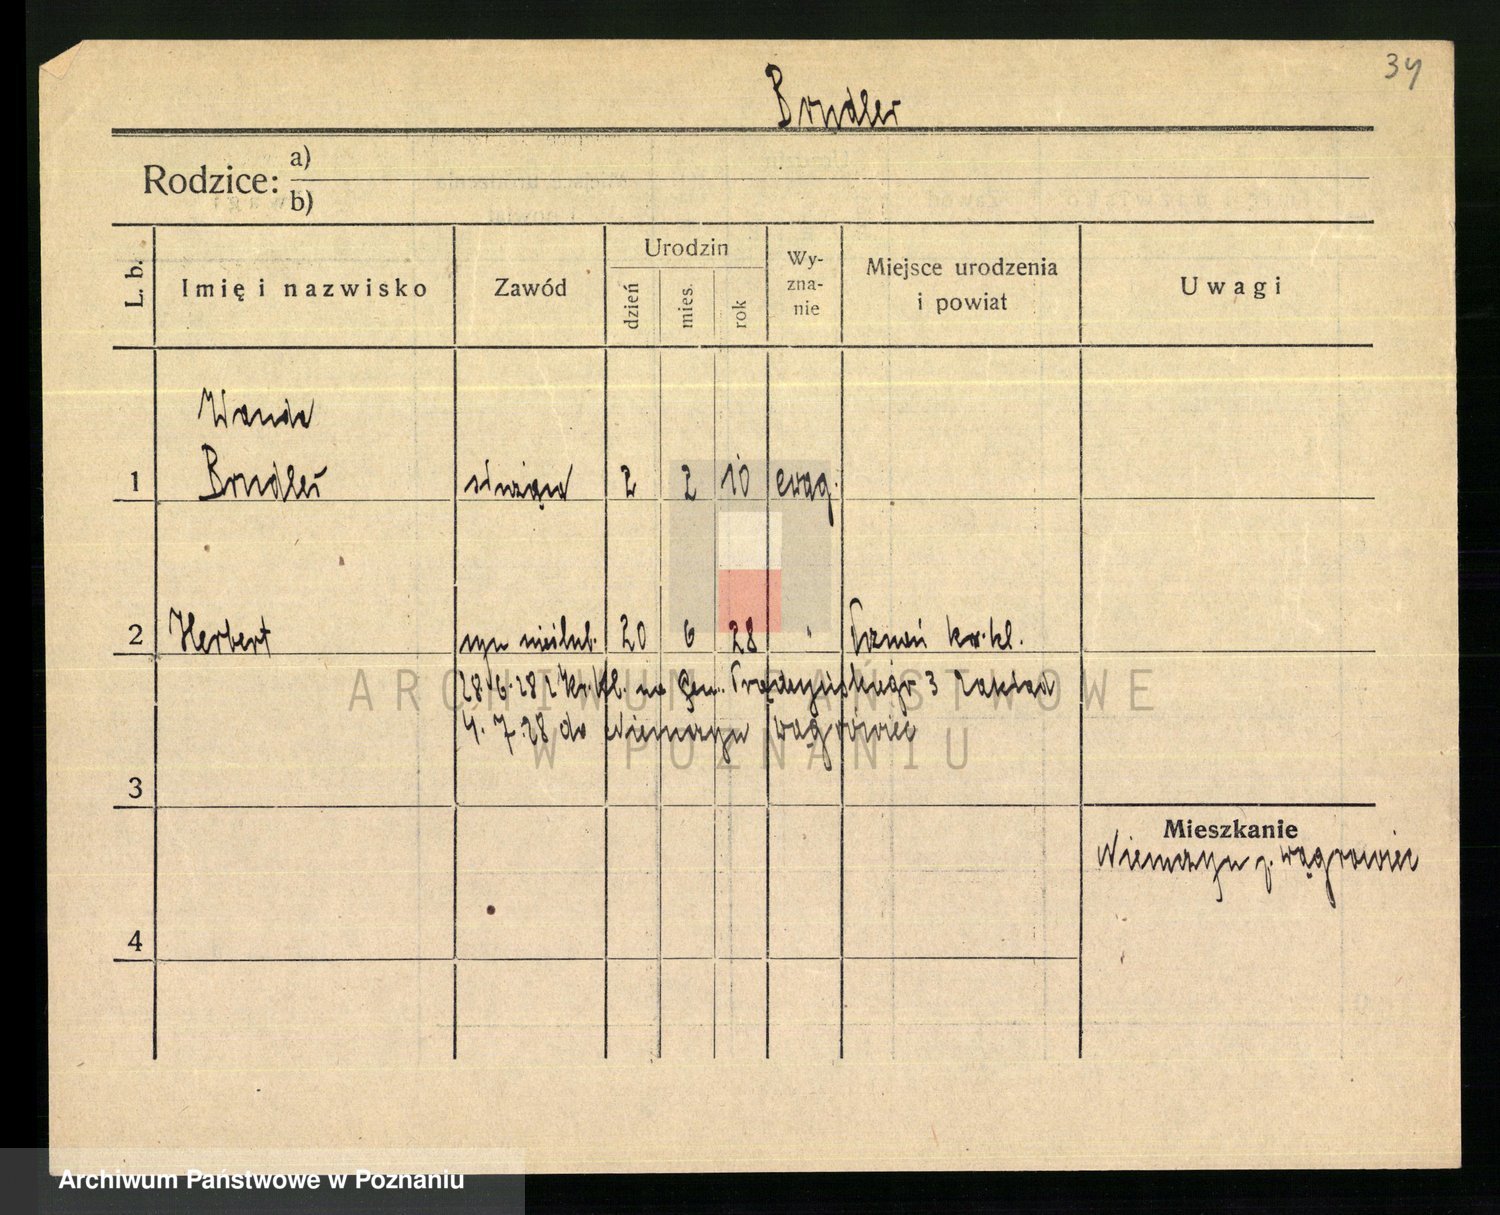 34
Bondler
Rodzice:
a)
b)
L. b.
Imię i nazwisko
Zawód
Urodzin
dzień
mies.
rok
Wy-
zna-
nie
Miejsce urodzenia
i powiat
Uwagi
Wanda
1 służąca 2 2 10 ewag.
2 Herbert syn nieślub. 20 6 28 " Poznań kr. kl.
28.6.28 z kr. kl. na Gen. Prądzyńskiego 3 Zakład
4.7.28 do Niemczyn Wągrowiec
3
Mieszkanie
Niemczyn p. Wągrowiec
4
ARCHIWUM PAŃSTWOWE
W POZNANIU
Archiwum Państwowe w Poznaniu